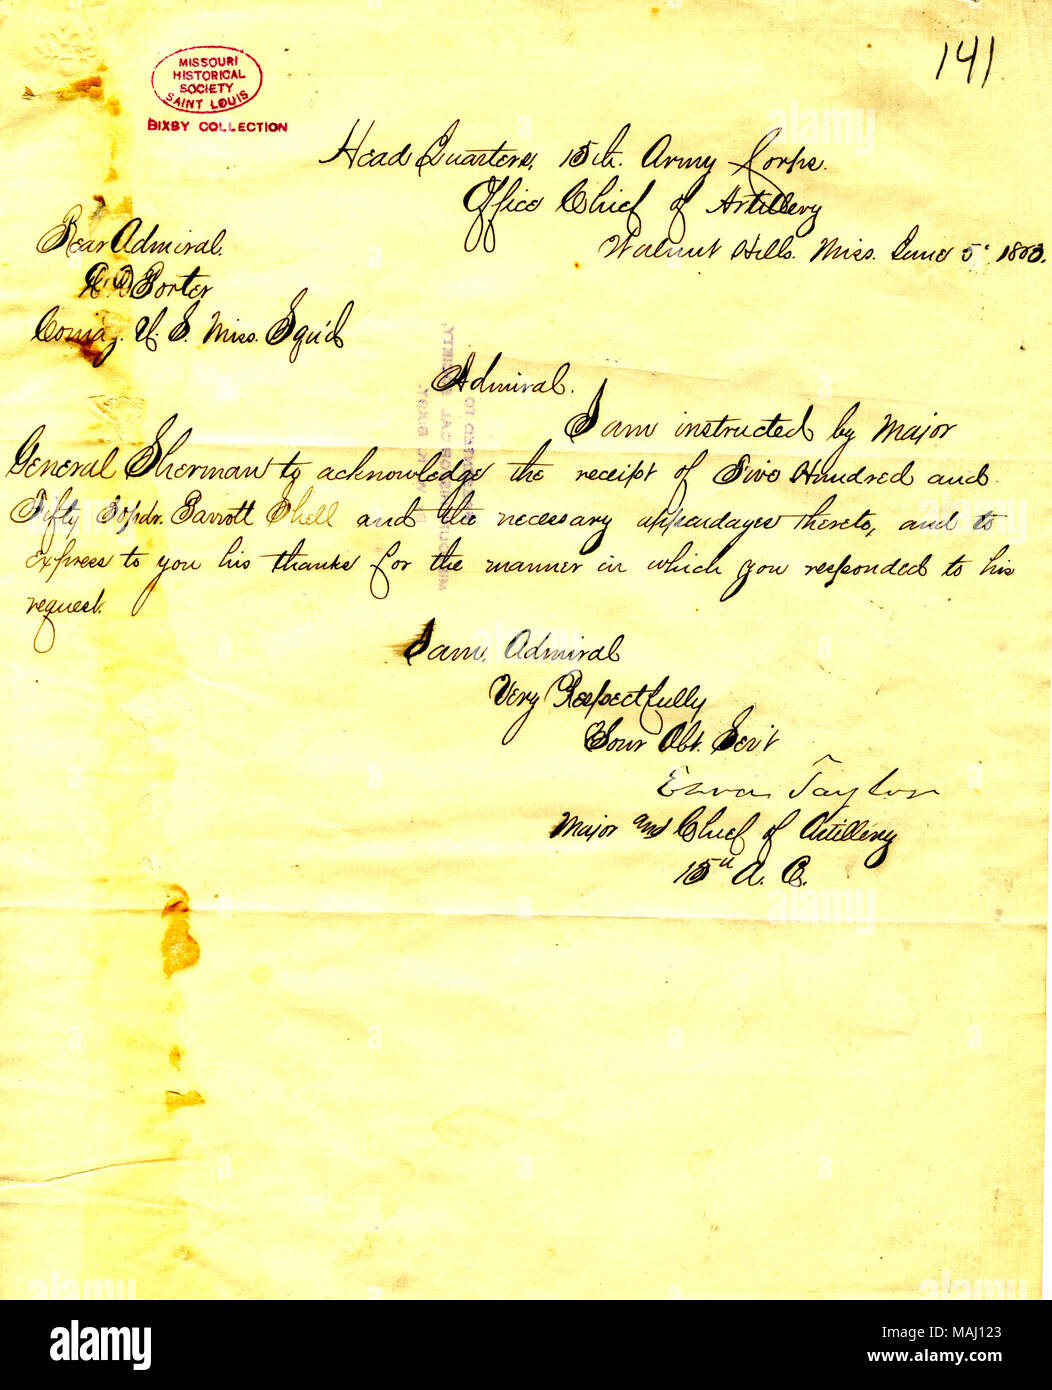 141
MISSOURI
HISTORICAL
SOCIETY
SAINT LOUIS
BIXBY COLLECTION
Head Quarters, 15th. Army Corps.
Office Chief of Artillery
Walnut Hills. Miss. June 5" 1863.
Rear Admiral.
D. D. Porter
Comdg. U. S. Miss. Squd
Admiral.
I am instructed by Major
General Sherman to acknowledge the receipt of Two Hundred and
Fifty 30 pdr. Parrott Shell and the necessary appendages thereto, and to
express to you his thanks for the manner in which you responded to his
request.
I am, Admiral
Very Respectfully
Your Obt. Servt
Ezra Taylor
Major and Chief of Artillery
15th A. C.
alamy
Image ID: MAJ123
www.alamy.com